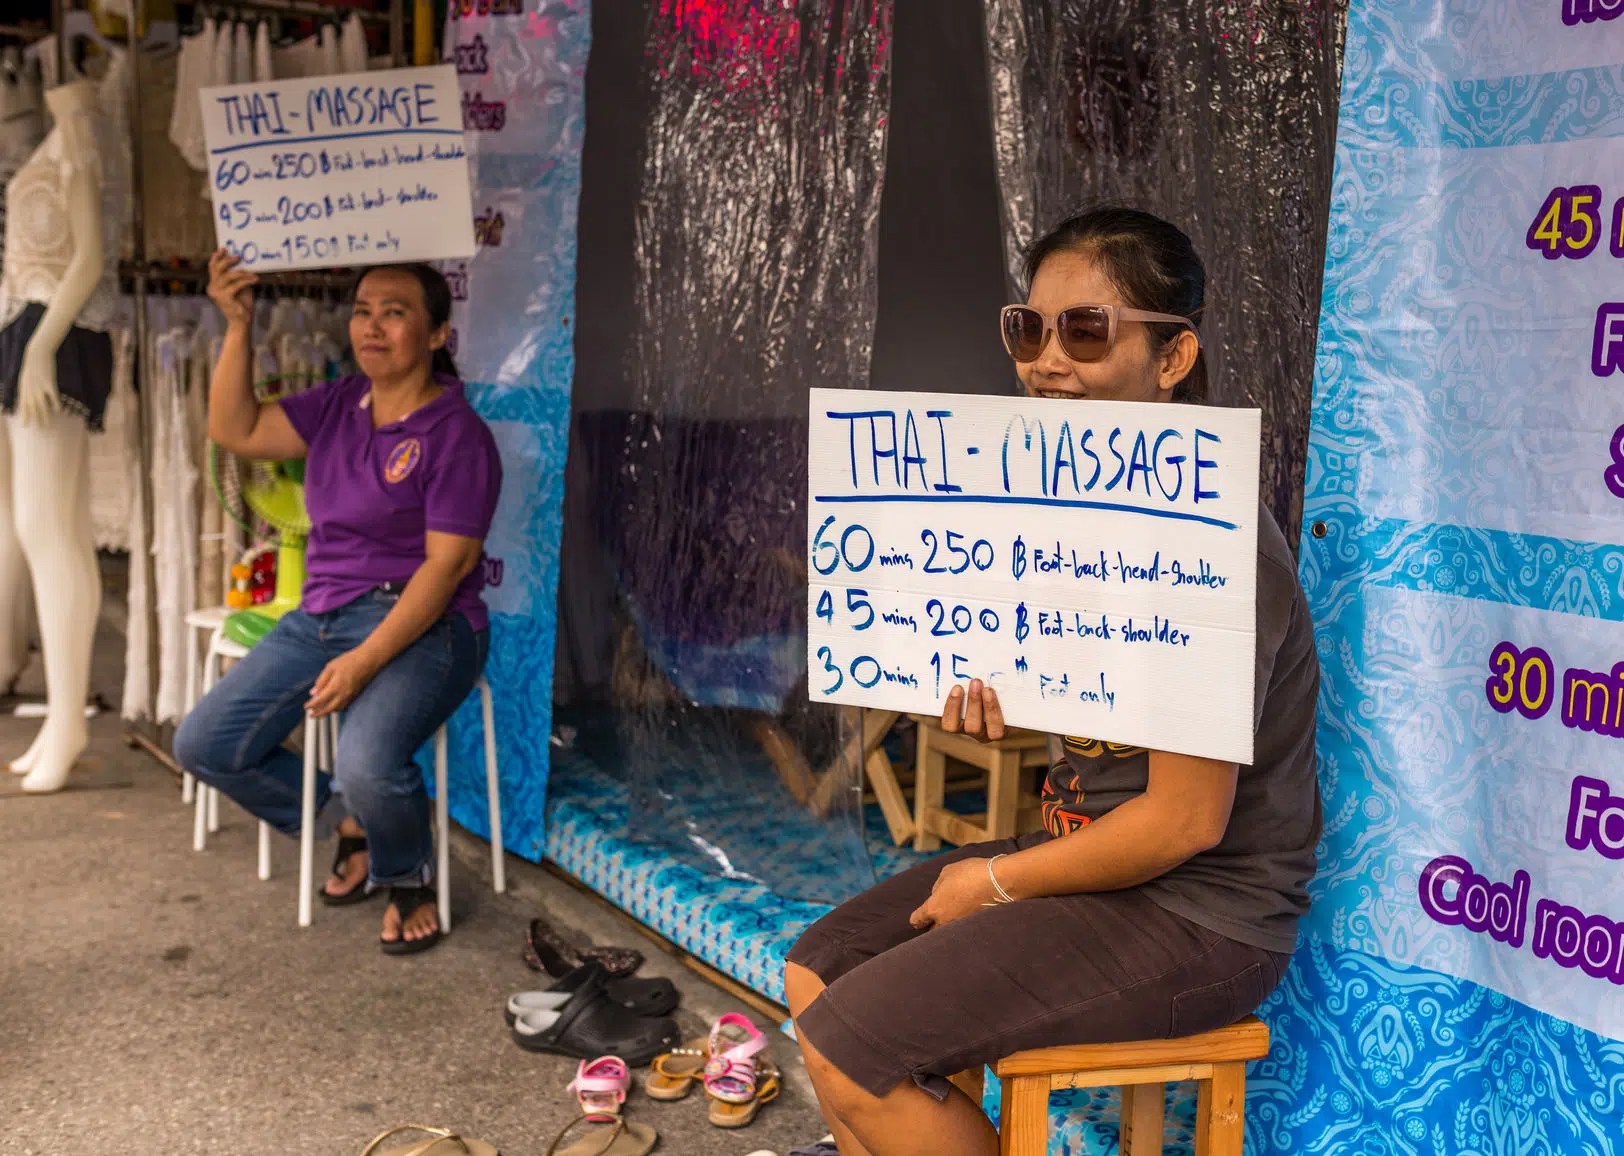 THAI-MASSAGE
60 mins 250 ฿ Foot-back-head-shoulder
45 mins 200 ฿ Foot-back-shoulder
30 mins 150฿ Foot only
THAI-MASSAGE
60 mins 250 ฿ Foot-back-head-shoulder
45 mins 200 ฿ Foot-back-shoulder
30 mins 15 Foot only
45
30 mi
Cool roo